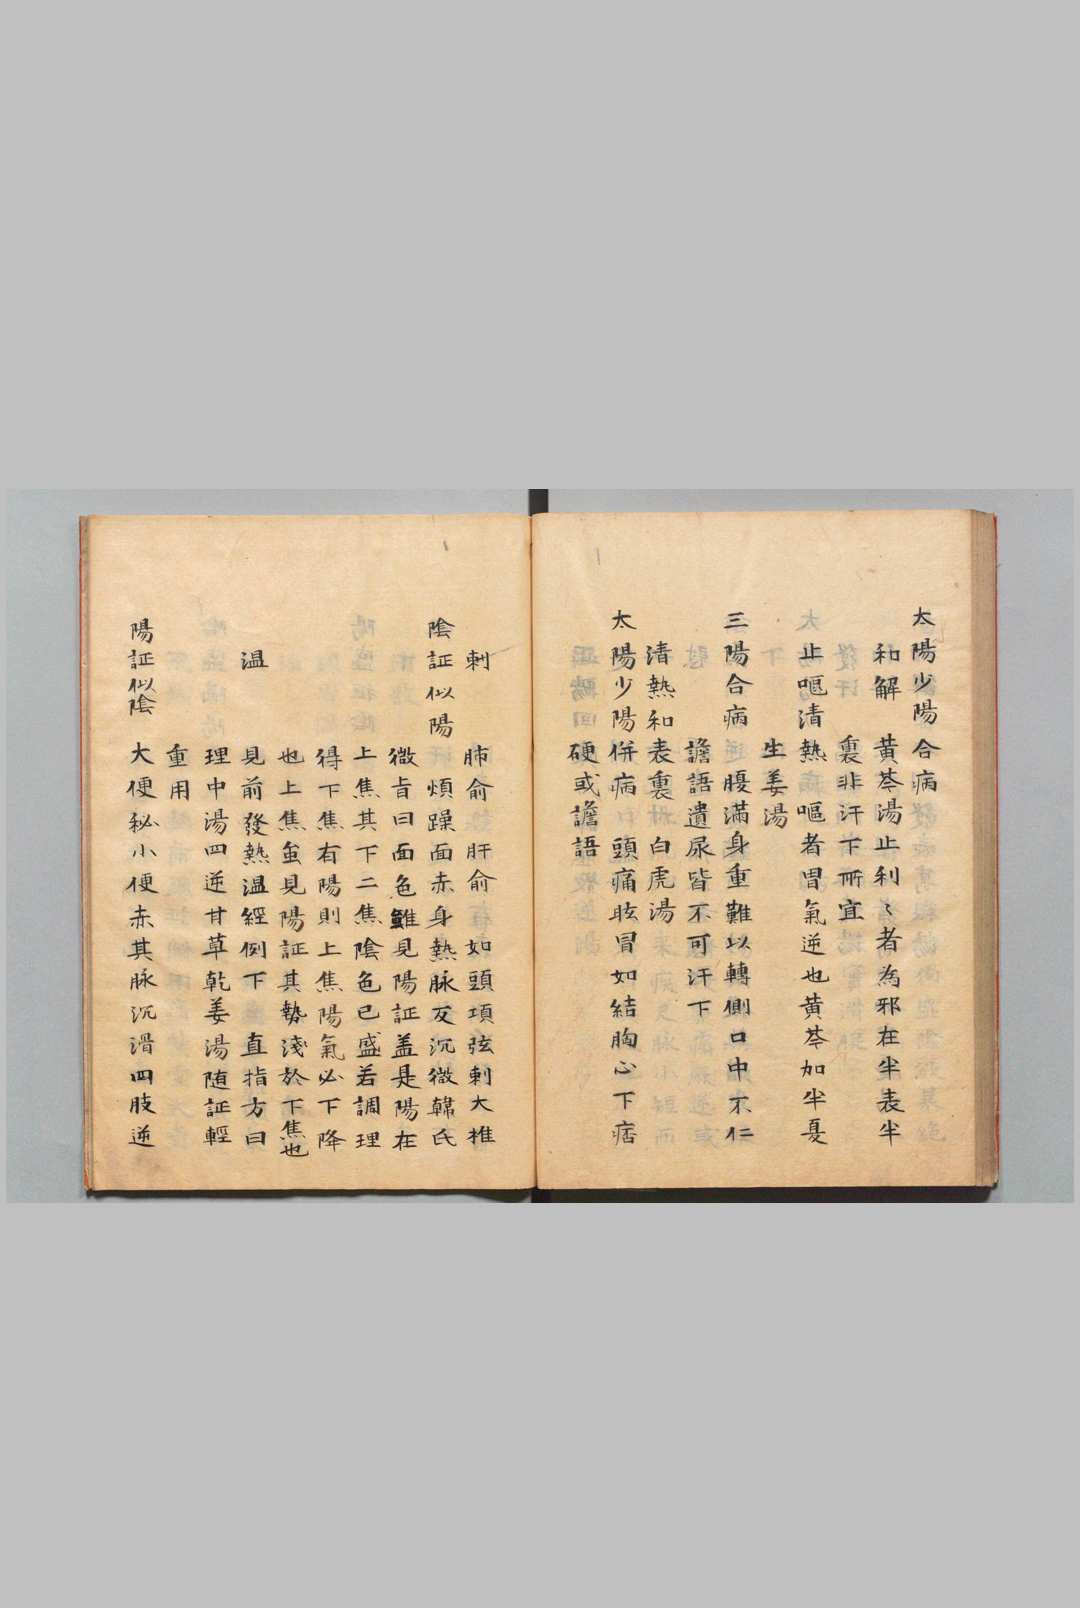 太陽少陽合病
和解　黃芩湯止利〻者為邪在半表半
裏非汗下所宜
止嘔清熱　嘔者胃氣逆也黃芩加半夏
生姜湯
三陽合病　腹滿身重難以轉側口中不仁
譫語遺尿皆不可汗下
清熱和表裏　白虎湯
太陽少陽併病　頭痛眩冒如結胸心下痞
硬或譫語
刺　肺俞肝俞如頭項弦刺大椎
陰証似陽　煩躁面赤身熱脉反沉微韓氏
微旨曰面色雖見陽証盖是陽在
上焦其下二焦陰色已盛若調理
得下焦有陽則上焦陽氣必下降
也上焦虽見陽証其勢淺於下焦也
溫　見前發熱溫經例下　直指方曰
理中湯四逆甘草乾姜湯随証輕
重用
陽証似陰　大便秘小便赤其脉沉滑四肢逆